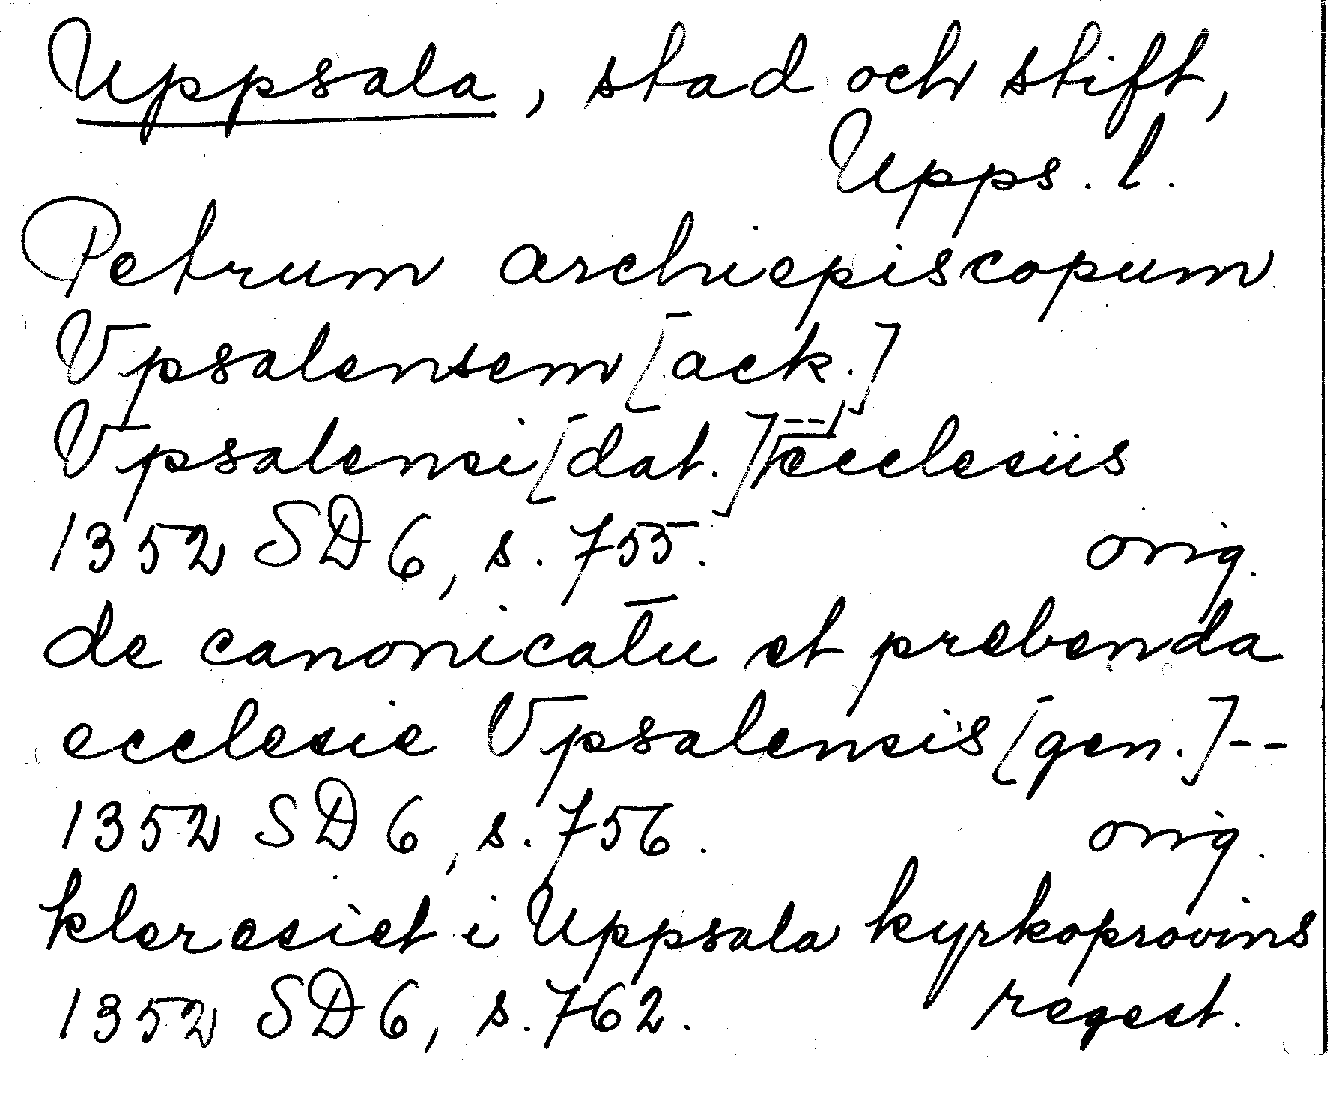 Uppsala, stad och stift,
Upps. l.
Petrum archiepiscopum
Vpsalensem [ack.]
Vpsalensi [dat.] -- ecclesiis
1352 SD 6, s. 755. orig.
de canonicatu et prebenda
ecclesie Vpsalensis [gen.] --
1352 SD 6, s. 756. orig.
kleresiet i Uppsala kyrkoprovins
1352 SD 6, s. 762. regest.